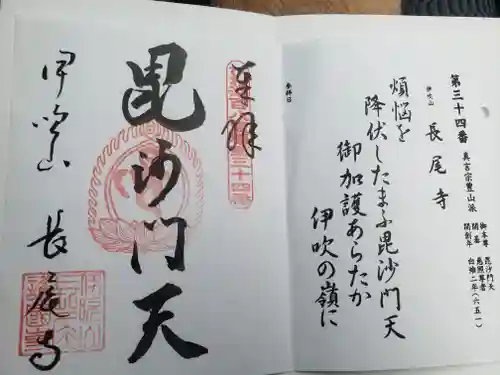 第三十四番
真言宗豊山派
御本尊 毘沙門天
開基 慈照尊者
開創年 白雉二年(六五一)
伊吹山
長尾寺
煩悩を
降伏したまふ毘沙門天
御加護あらたか
伊吹の嶺に
参拝日
奉拝
毘沙門天
伊吹山 長尾寺